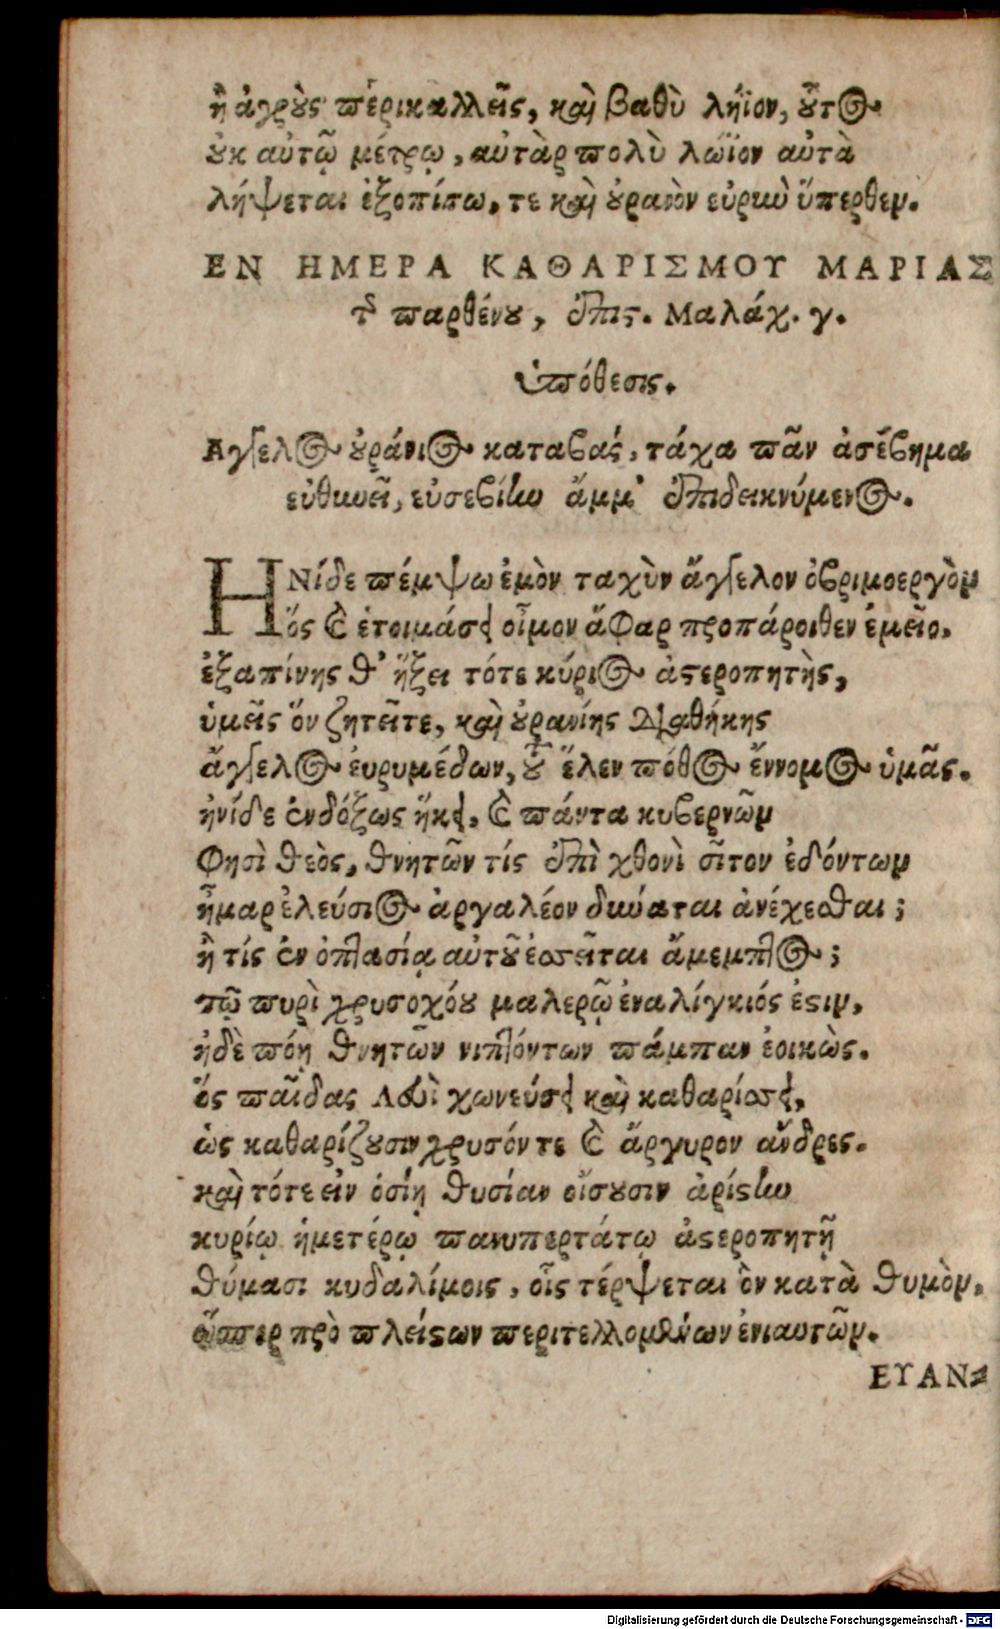 ἢ ἀγροὺς περικαλλεῖς, καὶ βαθὺ λήϊον, οὗτος
οὐκ αὐτῷ μέτρῳ, αὐτὰρ πολὺ λώϊον αὐτὰ
λήψεται ἐξοπίσω, τε καὶ οὐρανὸν εὐρὺν ὕπερθεν.
ΕΝ ΗΜΕΡΑ ΚΑΘΑΡΙΣΜΟΥ ΜΑΡΙΑΣ
τῆς παρθένου, ἐπις. Μαλάχ. γ.
ὑπόθεσις.
Αγγελος οὐράνιος καταβάς, τάχα πᾶν ἀσέβημα
εὐθυνεῖ, εὐσεβίην ἄμμ' ἐπιδεικνύμενος.
ΗΝίδε πέμψω ἐμὸν ταχὺν ἄγγελον ὀβριμοεργὸν
ὅς καὶ ἑτοιμάσει οἶμον ἄφαρ προπάροιθεν ἐμεῖο.
ἐξαπίνης θ' ἥξει τότε κύριος ἀστεροπητὴς,
ὑμεῖς ὅν ζητεῖτε, καὶ οὐρανίης διαθήκης
ἄγγελος ἐυρυμέδων, οὗ ἕλεν πόθος ἔννομος ὑμᾶς.
ἠνίδε ἐνδόξως ἥκει, καὶ πάντα κυβερνῶν
φησὶ θεὸς, θνητῶν τίς ἐπὶ χθονὶ σῖτον ἐδόντων
ἦμαρ ἐλεύσιος ἀργαλέον δύναται ἀνέχεσθαι;
ἢ τίς ἐν ὀπτασίᾳ αὐτοῦ ἑστεῖται ἄμεμπτος;
τῷ πυρὶ χρυσοχόου μαλερῷ ἐναλίγκιός ἐστιν,
ἠδὲ πόῃ θνητῶν νιπτόντων πάμπαν ἐοικὼς.
ὅς παῖδας Λευὶ χωνεύσει καὶ καθαρίσει,
ὡς καθαρίζουσιν χρυσόν τε καὶ ἄργυρον ἄνδρες.
καὶ τότε εἰν ὁσίῃ θυσίαν οἴσουσιν ἀρίστην
κυρίῳ ἡμετέρῳ πανυπερτάτῳ ἀστεροπητῇ
θύμασι κυδαλίμοις, οἷς τέρψεται ὃν κατὰ θυμὸν,
ὥσπερ πρὸ πλείστων περιτελλομένων ἐνιαυτῶν.
ΕΥΑΝ⸗
Digitalisierung gefördert durch die Deutsche Forschungsgemeinschaft - DFG